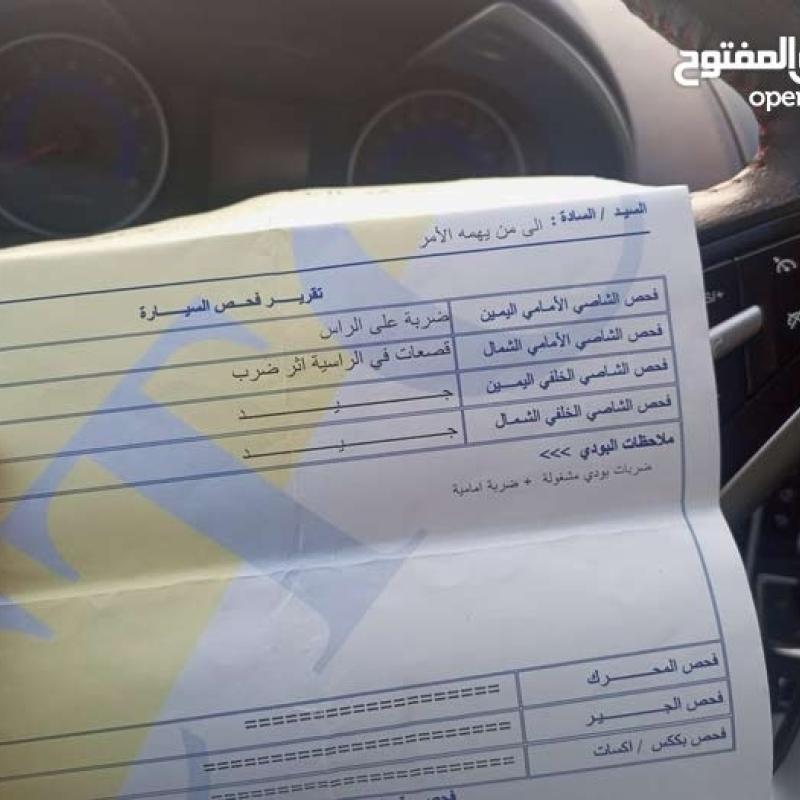 المفتوح
open
السيد / السادة : الى من يهمه الأمر
تقريـــر فحـص السيـــارة
فحص الشاصي الأمامي اليمين ضربة على الراس
فحص الشاصي الأمامي الشمال قصعات في الراسية اثر ضرب
فحص الشاصي الخلفي اليمـــين جـــــــيـــــــد
فحص الشاصي الخلفي الشمـال جـــــــيـــــــد
ملاحظات البودي >>>
ضربات بودي مشغولة + ضربة امامية
فحص المحـــــرك ====================
فحص الجـــــــير ========================
فحص بككس / اكسات ========================